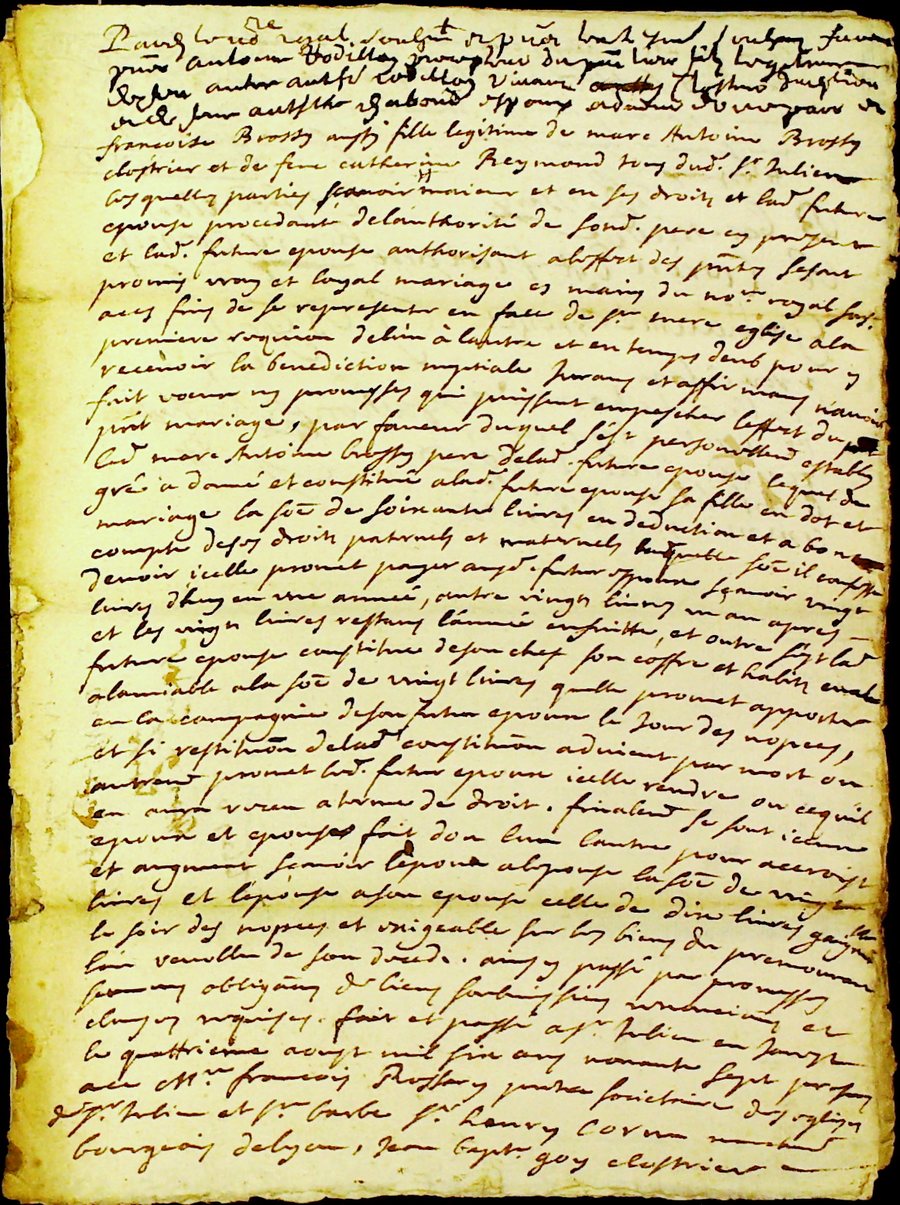 Pardt le no.re royal soubz.né et pñts
pñts Antoine Bodillon
feu autre Antt.e Bodillon vivant clostrier
et de Jeane espoux advenir d'une part et
francoise Brossy aussy fille legitime de marc Antoine Brossy
clostrier et de feue catherine Reymond tous dud. s.t Julien
lesquelles parties scavoir maieur et en ses droits et lad. future
epouse procedant de l'authorité de sond. pere cy present
et lad. future epouse authorisant a l'effect des pñtes se sont
promis vray et loyal mariage es mains du no.re royal sus.
aces fins de se representer en face de s.te mere eglise a la
premiere requion de l'un à l'autre et en temps deub pour y
recevoir la benediction nuptiale Jurans et affirmans n'avoir
fait voeux ny promesses qui puissent empescher l'effect du
pñt mariage, par faveur duquel s'est personellem.t estably
led. marc Antoine brossy pere de lad. future epouse lequel de
gré a donné et constitué a lad. future epouse sa fille en dot et
mariage la soe de soixante livres en deduction et a bon
compte de ses droits paternels et maternels laquelle soe il confesse
devoir icelle promet payer aud. futur espoux scavoir vingt
livres d'huy en une année, autre vingt livres un an apres
et les vingt livres restans l'année ensuitte, et outre s'est lad.
future epouse constitue de son chef son coffre et habits evalué
a l'amiable a la soe de vingt livres quelle promet apporter
en la compagnie de son futur epoux le Jour des nopces,
et si restituõn de lad. constitution advient par mort ou
autrem.t promet led. futur epoux icelle rendre ou cequil
en aura receu a terme de droit. finalem.t se sont iceux
epoux et epouse fait don l'un l'autre pour accroist
et augment scavoir l'epoux a l'epouse la soe de vingt
livres et l'epouse a son epoux celle de dix livres gaignable
le soir des nopces et exigeable sur les biens du premourant
l'an revollu de son deceds. ainsy passé par promesses
sermens obligaõns de biens soubmissions renonciaõns et
clauses requises. fait et passé a s.t Julien en Jarest
le quattrieme aoust mil six cens nonante sept presens
ace M.re francois Rossary pretre societaire des eglises
de s.t Julien et s.te barbe s.r henry Corun marchand
bourgeois de lyon, Jean bapt.e goy clostrier